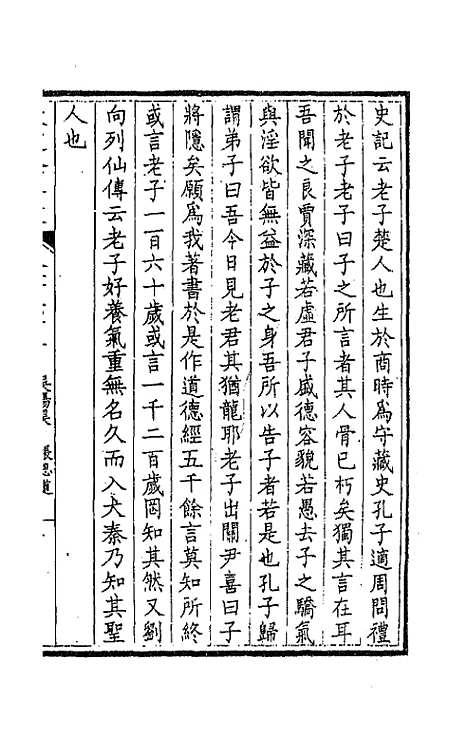 史記云老子楚人也生於商時爲守藏史孔子適周問禮
於老子老子曰子之所言者其人骨已朽矣獨其言在耳
吾聞之良賈深藏若虛君子盛德容貌若愚去子之驕氣
與淫欲皆無益於子之身吾所以告子者若是也孔子歸
謂弟子曰吾今日見老君其猶龍耶老子出關尹喜曰子
將隱矣願爲我著書於是作道德經五千餘言莫知所終
或言老子一百六十歲或言一千二百歲罔知其然又劉
向列仙傳云老子好養氣重無名久而入大秦乃知其聖
人也